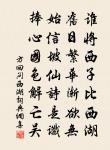 誰將西子比西湖
舊日繁華漸欲無
始信坡仙詩是讖
捧心國色解亡吳
方回問西湖